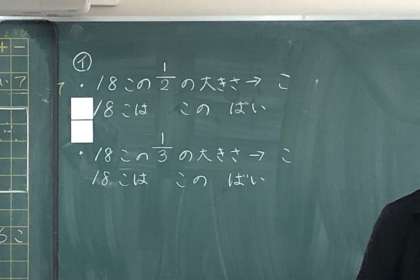 + -
いて
ちこ
㋑
・18この1/2の大きさ→ こ
18こは このばい
・18この1/3の大きさ→ こ
18こは このばい